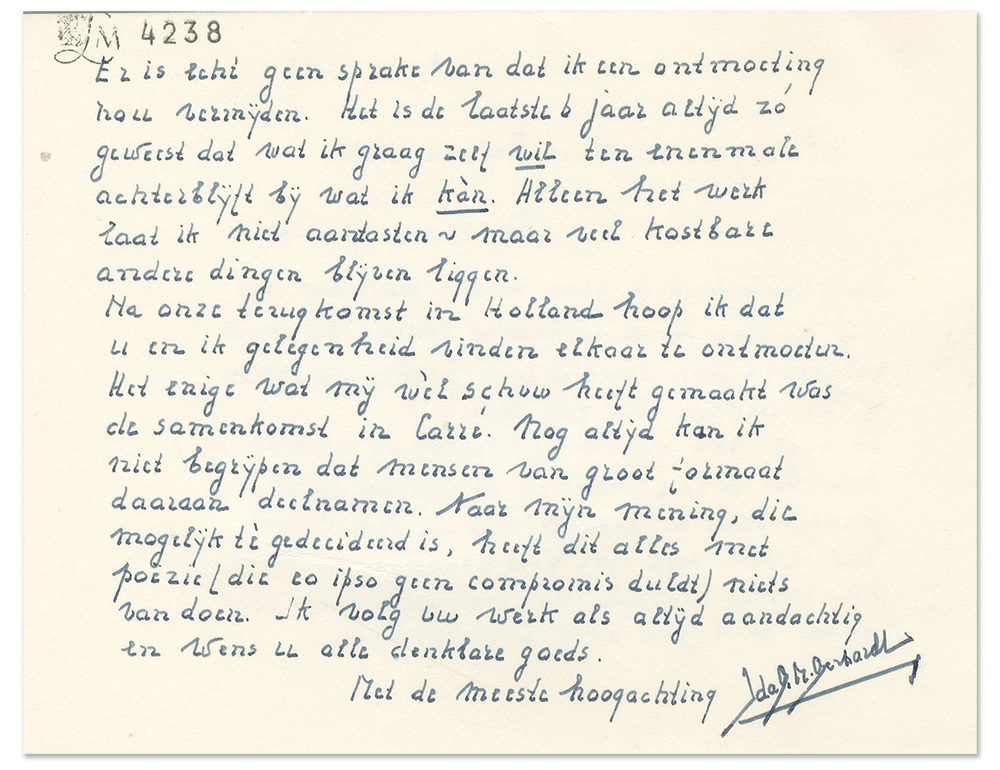 LM 4238
Er is echt geen sprake van dat ik een ontmoeting
zou vermijden. Het is de laatste 6 jaar altijd zó
geweest dat wat ik graag zelf wil ten enenmale
achterblijft bij wat ik kàn. Alleen het werk
laat ik niet aantasten ~ maar veel kostbare
andere dingen blijven liggen.
Na onze terugkomst in Holland hoop ik dat
u en ik gelegenheid vinden elkaar te ontmoeten.
Het enige wat mij wèl schuw heeft gemaakt was
de samenkomst in Carré. Nog altijd kan ik
niet begrijpen dat mensen van groot formaat
daaraan deelnamen. Naar mijn mening, die
mogelijk tè gedecideerd is, heeft dit alles met
poëzie (die eo ipso geen compromis duldt) niets
van doen. Ik volg uw werk als altijd aandachtig
en wens u alle denkbare goeds.
Met de meeste hoogachting Ida G. M. Gerhardt